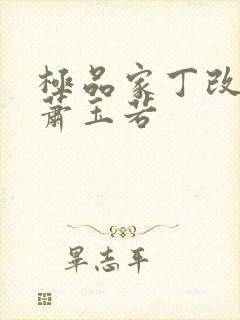 極品家丁改
蕭玉若
畢志平